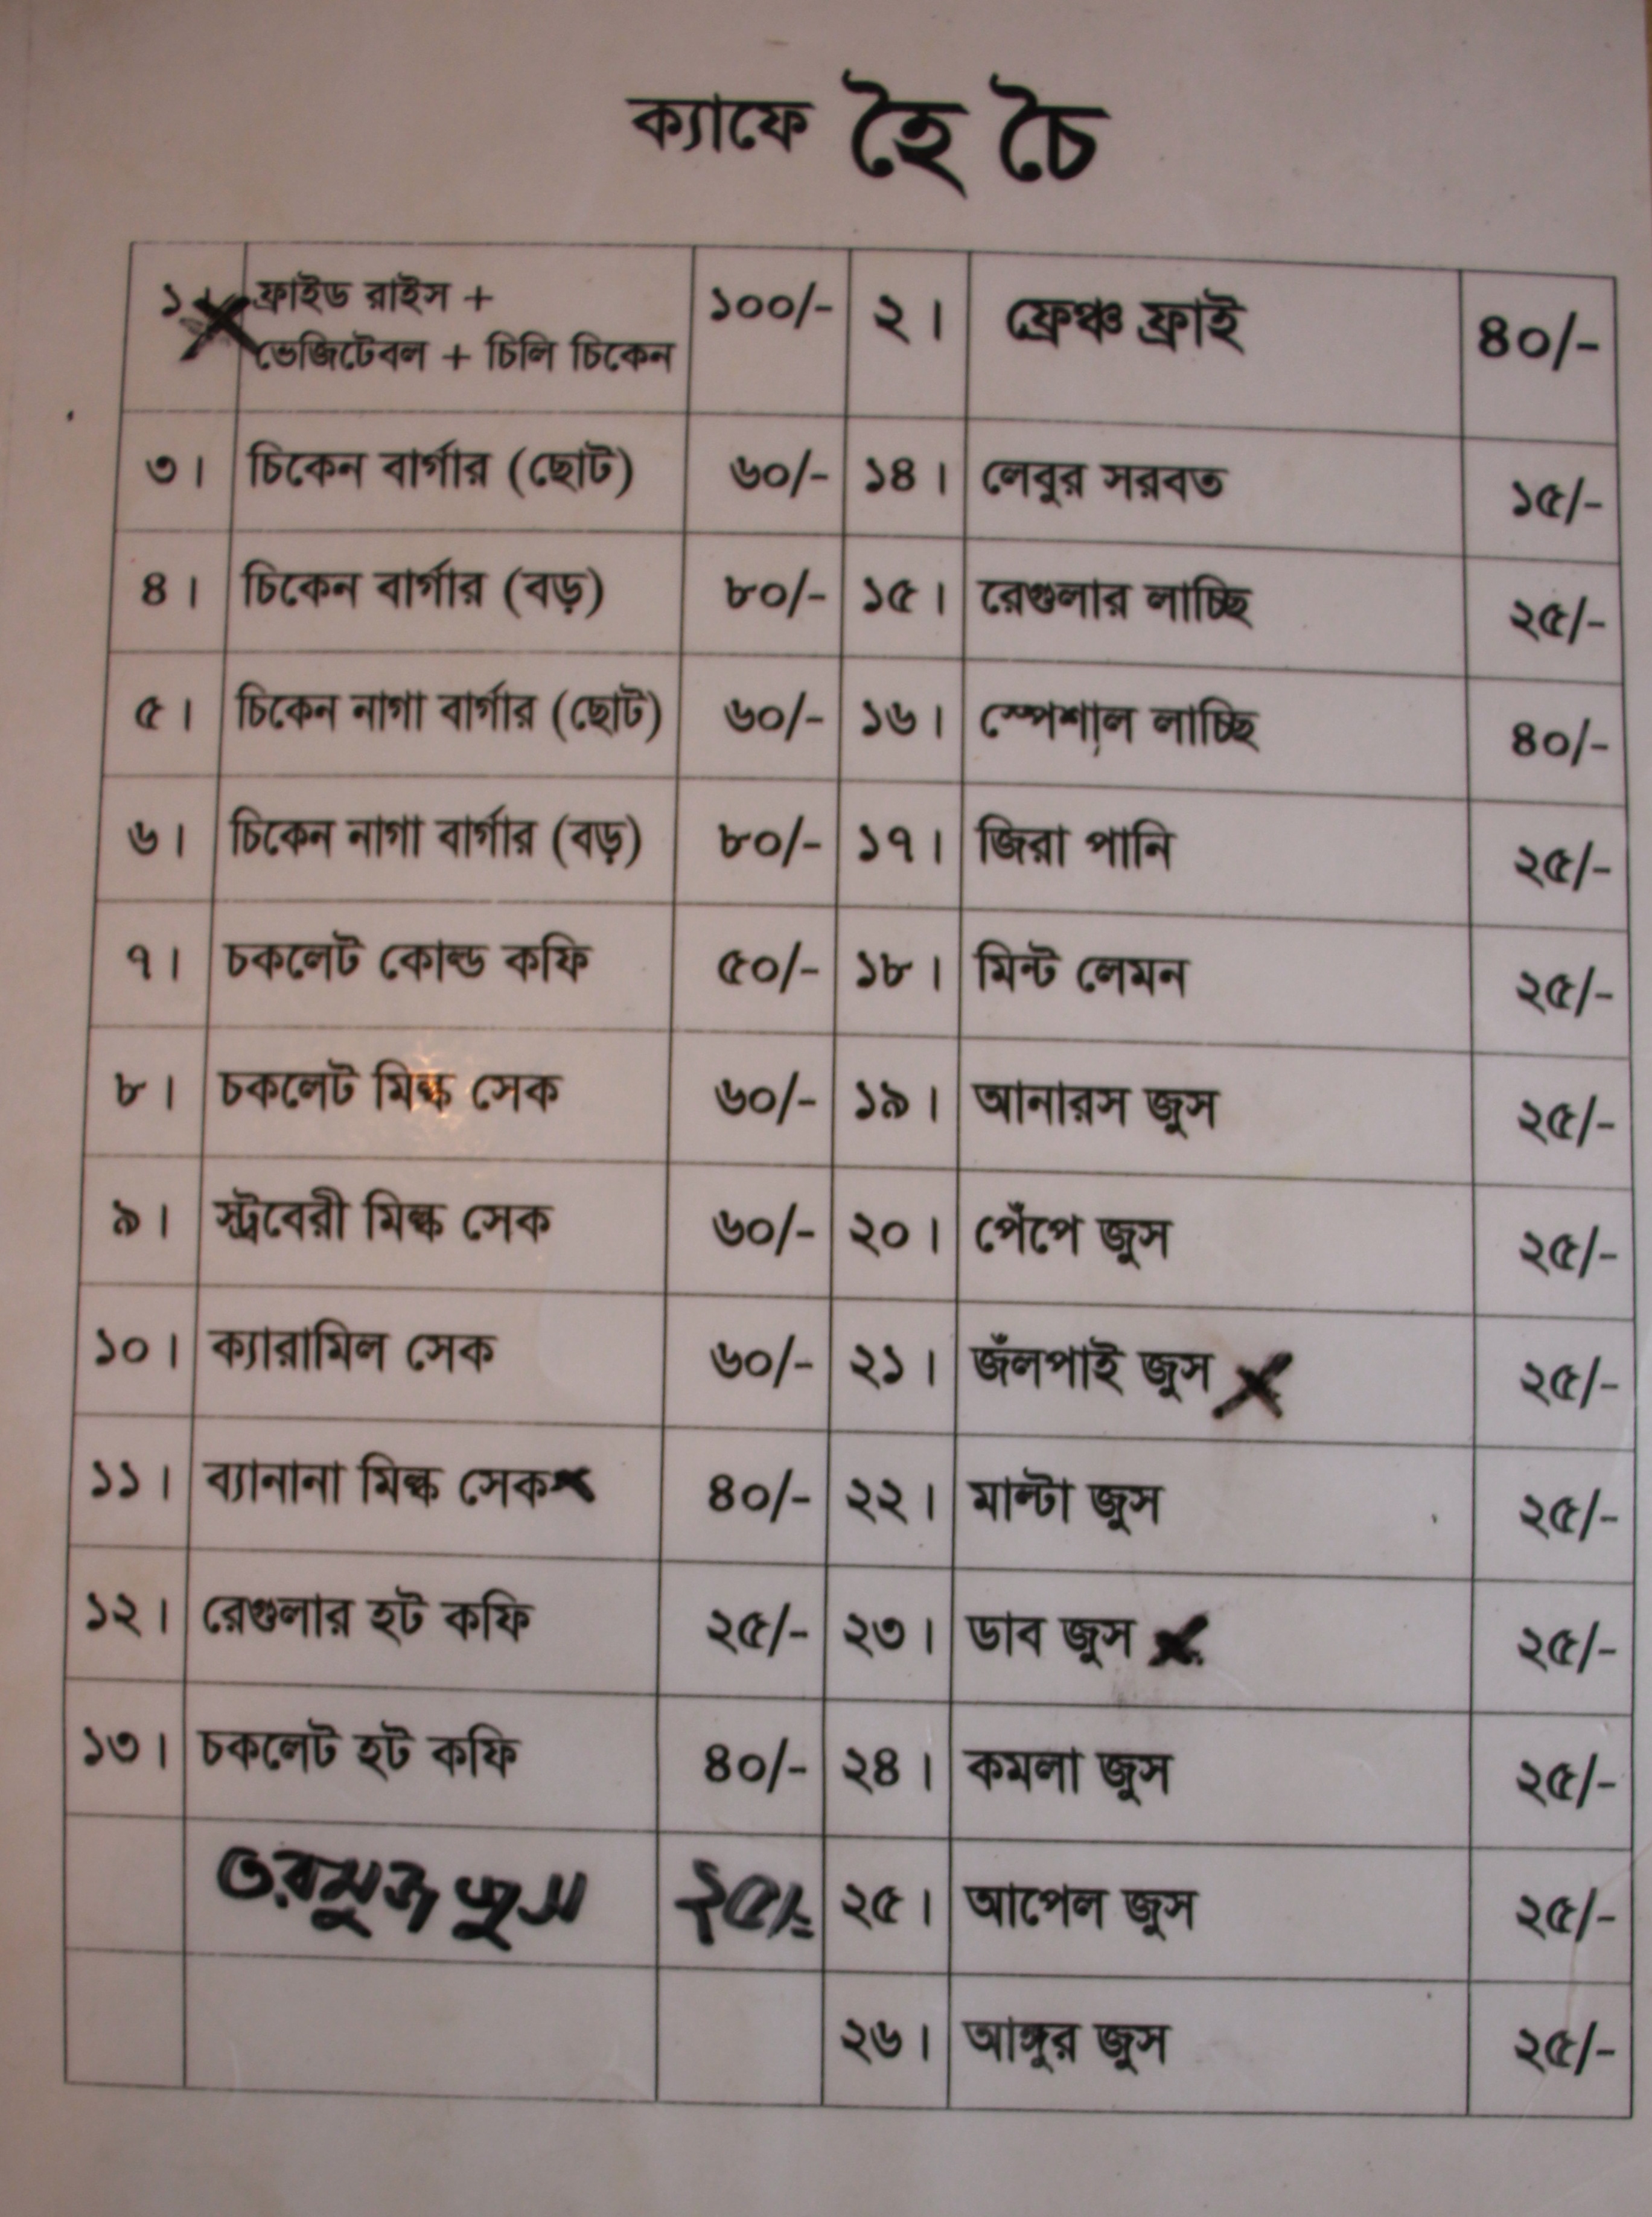 ক্যাফে হৈ চৈ
১। ফ্রাইড রাইস + ভেজিটেবল + চিলি চিকেন ১০০/- ২। ফ্রেঞ্চ ফ্রাই ৪০/-
৩। চিকেন বার্গার (ছোট) ৬০/- ১৪। লেবুর সরবত ১৫/-
৪। চিকেন বার্গার (বড়) ৮০/- ১৫। রেগুলার লাচ্ছি ২৫/-
৫। চিকেন নাগা বার্গার (ছোট) ৬০/- ১৬। স্পেশাল লাচ্ছি ৪০/-
৬। চিকেন নাগা বার্গার (বড়) ৮০/- ১৭। জিরা পানি ২৫/-
৭। চকলেট কোল্ড কফি ৫০/- ১৮। মিন্ট লেমন ২৫/-
৮। চকলেট মিল্ক সেক ৬০/- ১৯। আনারস জুস ২৫/-
৯। স্ট্রবেরী মিল্ক সেক ৬০/- ২০। পেঁপে জুস ২৫/-
১০। ক্যারামিল সেক ৬০/- ২১। জঁলপাই জুস ২৫/-
১১। ব্যানানা মিল্ক সেক ৪০/- ২২। মাল্টা জুস ২৫/-
১২। রেগুলার হট কফি ২৫/- ২৩। ডাব জুস ২৫/-
১৩। চকলেট হট কফি ৪০/- ২৪। কমলা জুস ২৫/-
তরমুজ জুস ২৫/- ২৫। আপেল জুস ২৫/-
২৬। আঙ্গুর জুস ২৫/-